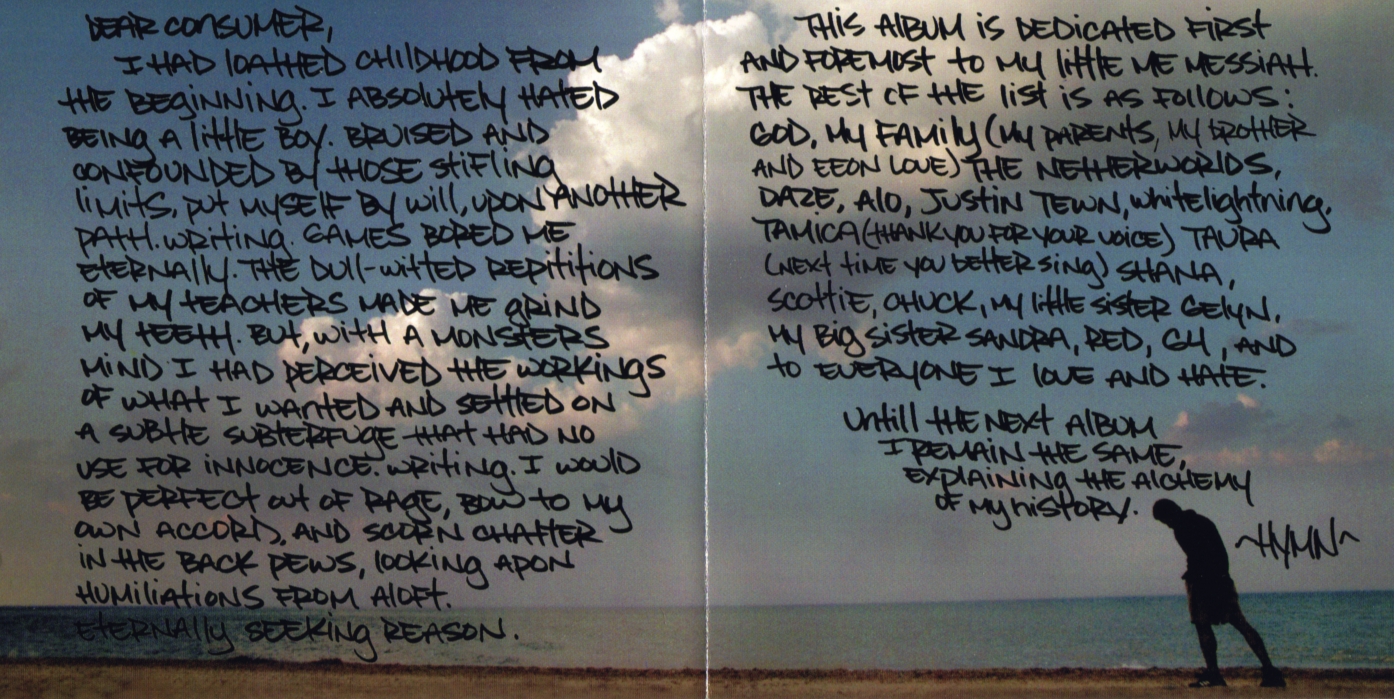 DEAR CONSUMER,
I HAD lOATHED CHIlDHOOD FROM
tHE BEgiNNiNg. I ABSOlutEly HAtED
BEiNg A little BOy. BRUiSED AND
CONFOUNDED By tHOSE StiFliNg
liMitS, put MySElF By will, upON ANOtHER
PAtH. wRitiNg. GAMES BORED ME
EtERNAlly. THE Dull-wittED REPititiONS
OF My tEACHERS MADE ME gRiND
My tEEtH. But, witH A MONStERS
MiND I HAD PERCEiVED tHE WORKiNgS
OF wHAt I wANtED AND SEttlED ON
A SUBtlE SUBtERFUgE tHAt HAD NO
USE FOR iNNOCENCE. wRitiNg. I wOulD
BE PERFECt Out OF RAgE, BOw tO My
OwN ACCORD, AND SCORN CHAttER
iN tHE BACK PEwS, lOOKiNg APON
HUMiliAtiONS FROM AlOFt.
EtERNAlly SEEKiNg REASON.
THiS AlBUM iS DEDiCAtED FiRSt
AND FOREMOSt tO My littlE ME MESSiAH.
THE REST OF tHE liSt iS AS FOllOwS:
GOD, My FAMily (My PARENtS, My BROtHER
AND EEON lOVE) THE NEtHERWORlDS,
DAZE, AlO, JUStiN TEWN, whitelightning,
TAMiCA (tHANK yOU FOR yOUR VOiCE) TAURA
(NEXt tiME yOU BEttER SiNg) SHANA,
SCOttiE, CHUCK, My littlE SiStER GElyN,
My Big SiStER SANDRA, RED, G4, AND
tO EVERyONE I lOVE AND HAtE.
UNtill tHE NEXt AlBUM
I REMAiN tHE SAME,
EXPlAiNiNg tHE AlCHEMy
OF My HiStORy.
~HyMN~